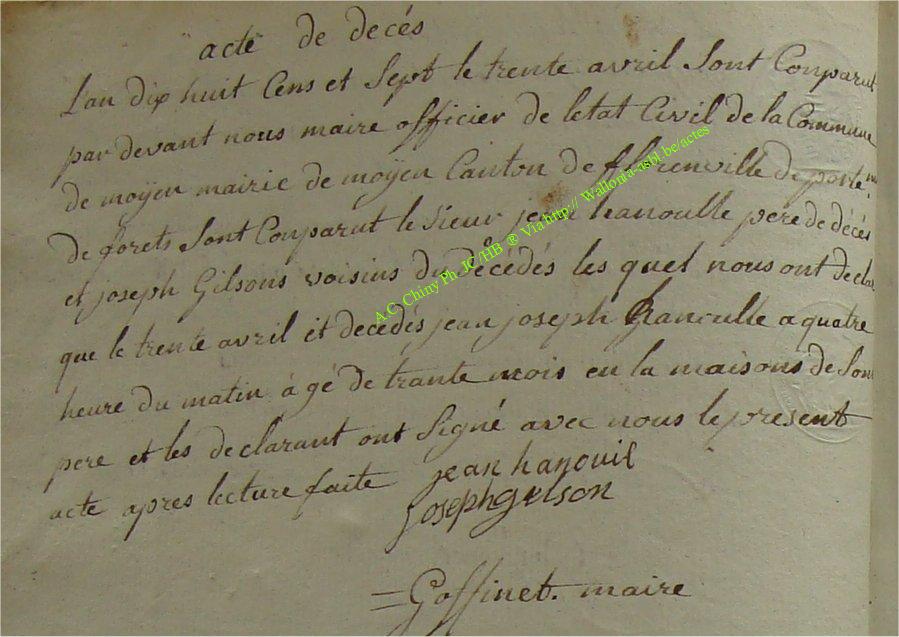 acte de decés
L'an dix huit Cens et Sept le trente avril Sont Conparut
par devant nous maire officier de letat Civil de la Commune
de moÿen mairie de moÿen Canton de fflorenville de porte
de forets Sont Conparut le Sieur jean hanoulle pere de décés
et joseph Gilsons voisins du Décédés les quel nous ont declar
que le trente avril et decedés jean joseph hanoulle a quatre
heure du matin âgé de trante mois en la maisons de Son
pere et les declarant ont Signé avec nous le present
acte apres lecture faite jean hanouil
joseph gilson
=Goffinet. maire
A.C. Chiny Ph JC/HB ® Via http:// Wallonia-asbl.be/actes